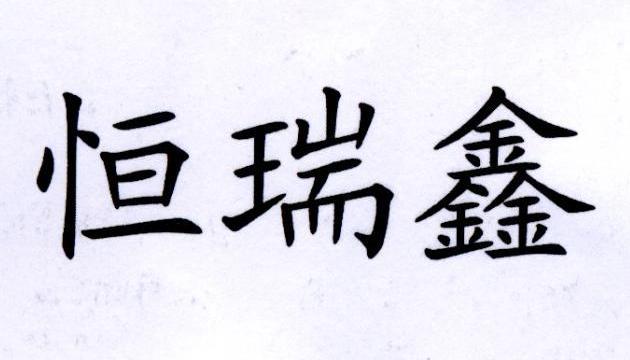 恒瑞鑫